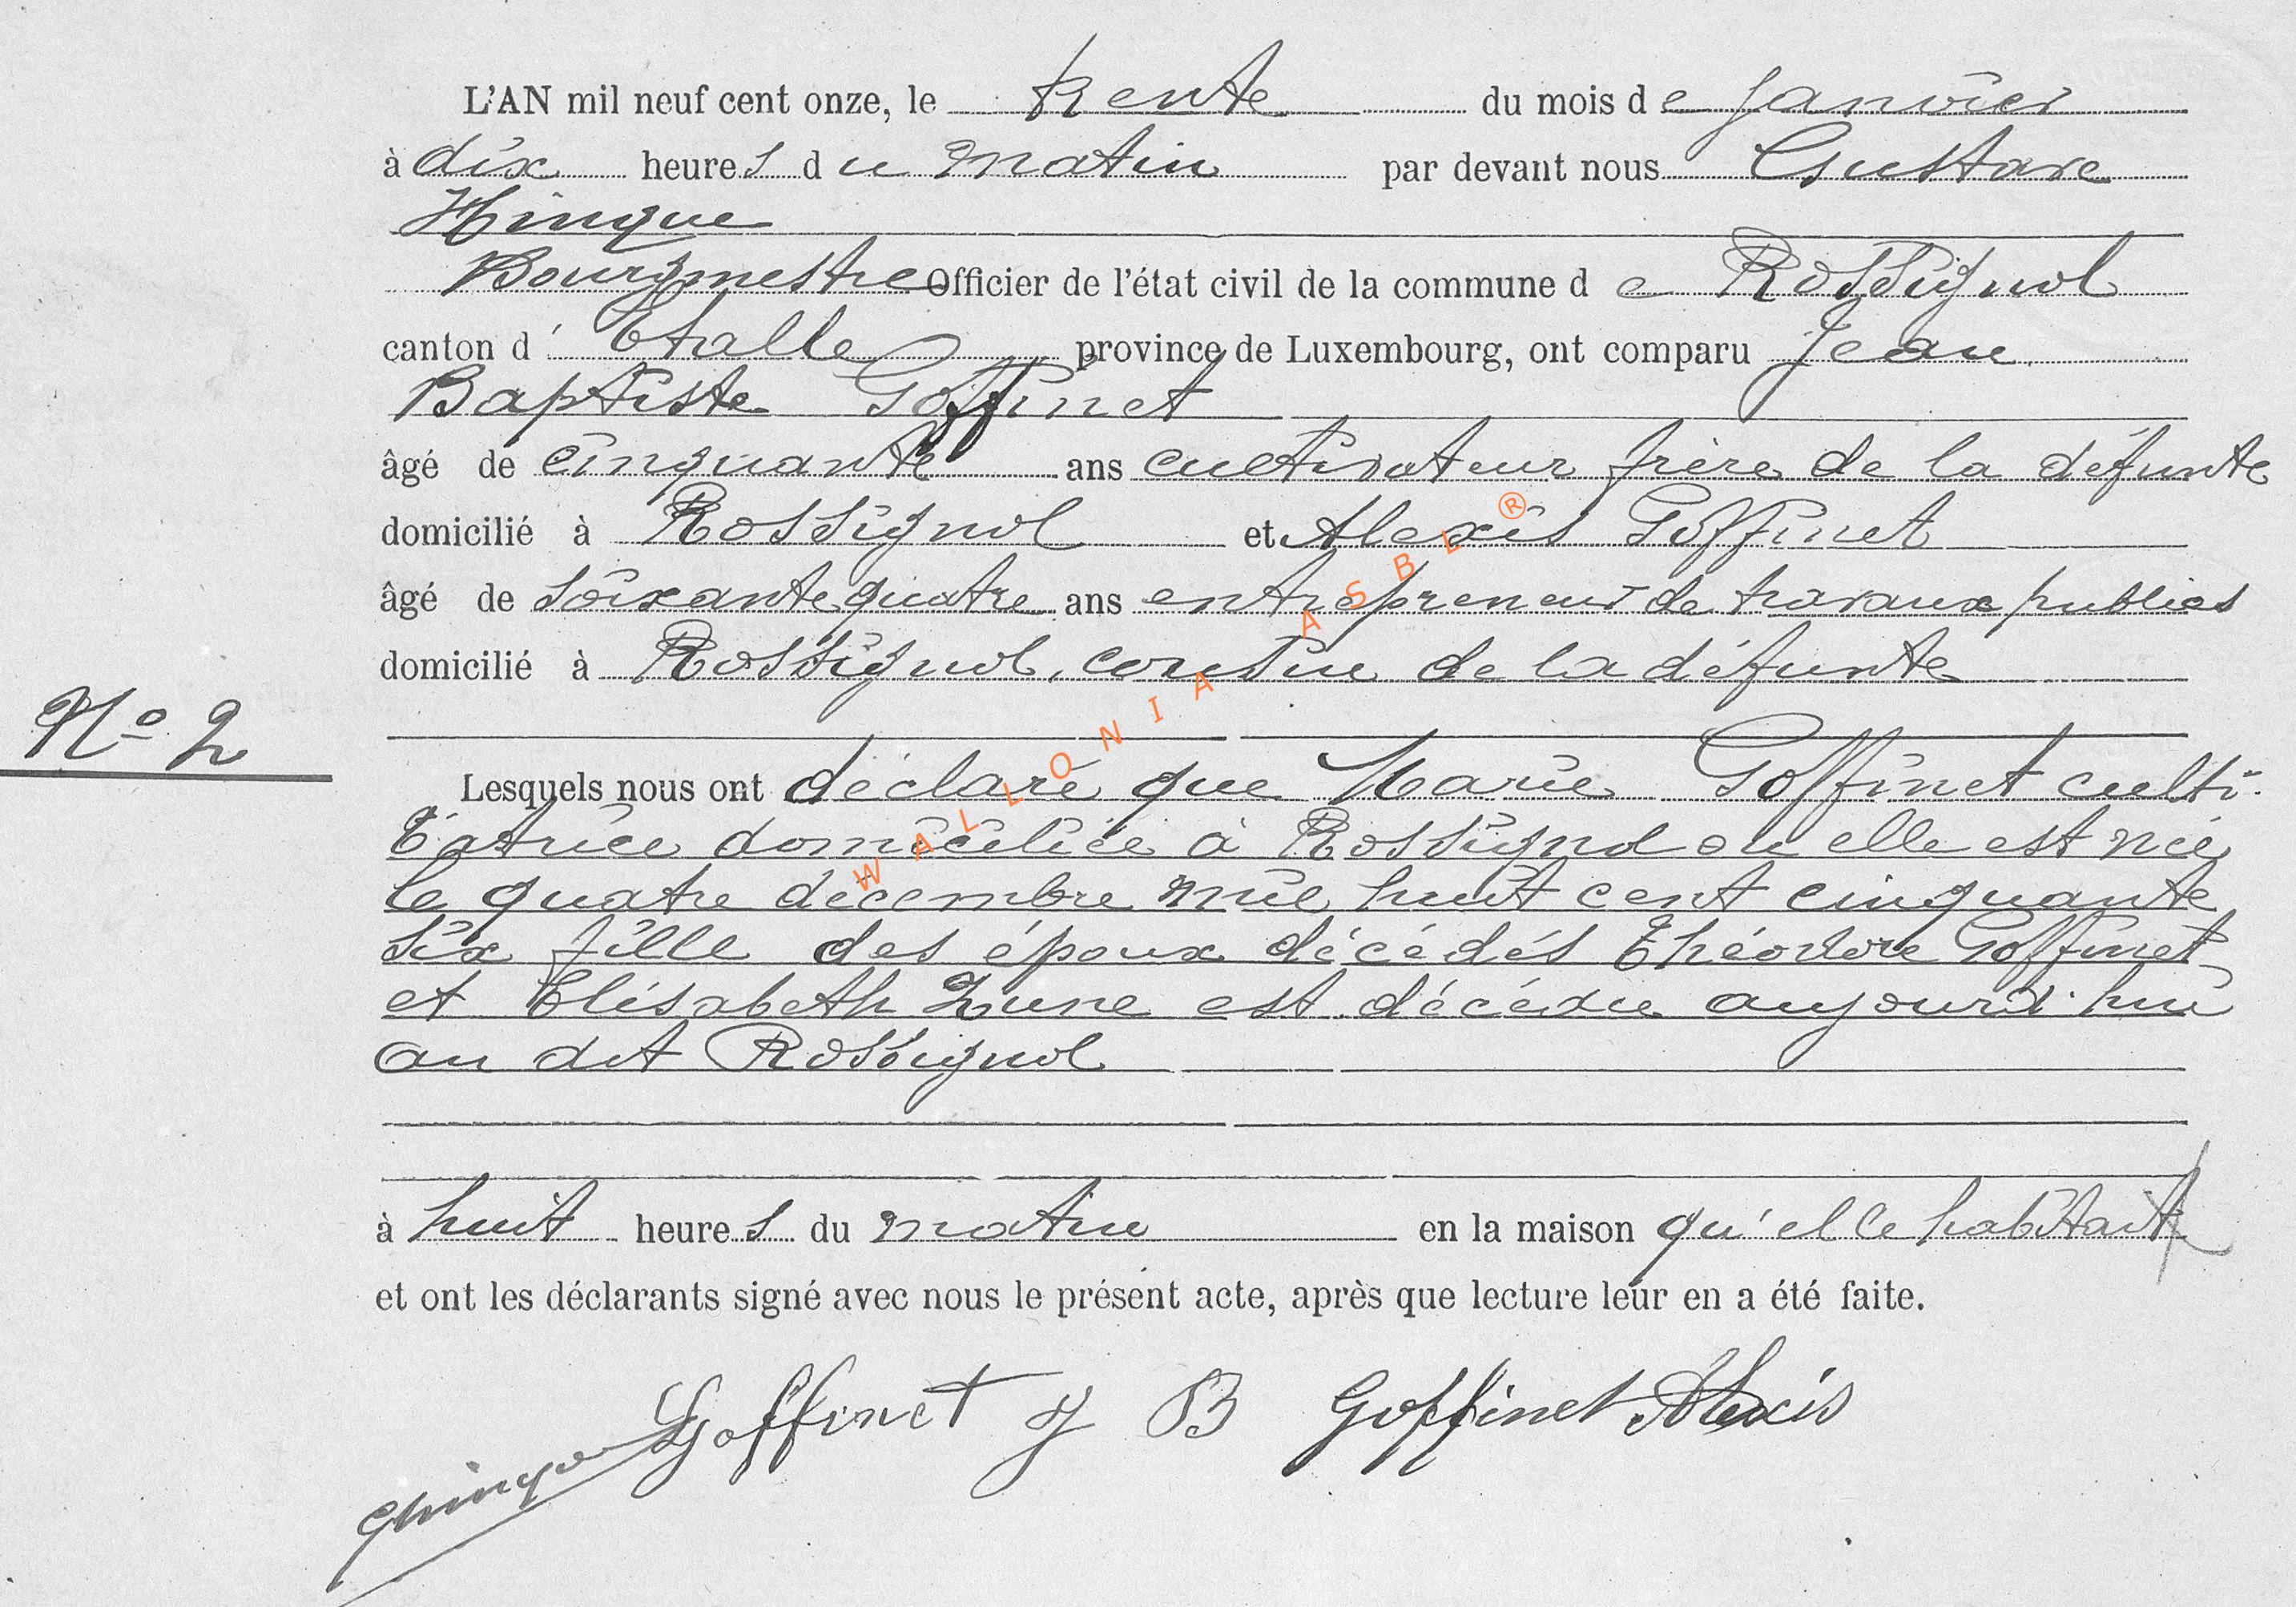 L'AN mil neuf cent onze, le trente du mois de Janvier
à dix heures du matin par devant nous Gustave
Hinque
Bourgmestre Officier de l'état civil de la commune de Rossignol
canton d'Etalle province de Luxembourg, ont comparu Jean
Baptiste Goffinet
âgé de cinquante ans cultivateur frère de la défunte
domicilié à Rossignol et Alexis Goffinet
âgé de soixante quatre ans entrepreneur de travaux publics
domicilié à Rossignol, cousin de la défunte
N° 2
Lesquels nous ont déclaré que Marie Goffinet culti-
vatrice domiciliée à Rossignol où elle est née
le quatre décembre mil huit cent cinquante
six fille des époux décédés Théodore Goffinet
et Elisabeth Zune est décédée aujourd'hui
au dit Rossignol
à huit heures du matin en la maison qu'elle habitait
et ont les déclarants signé avec nous le présent acte, après que lecture leur en a été faite.
Goffinet J B Goffinet Alexis
GHinque
WALLONIA ASBL ®